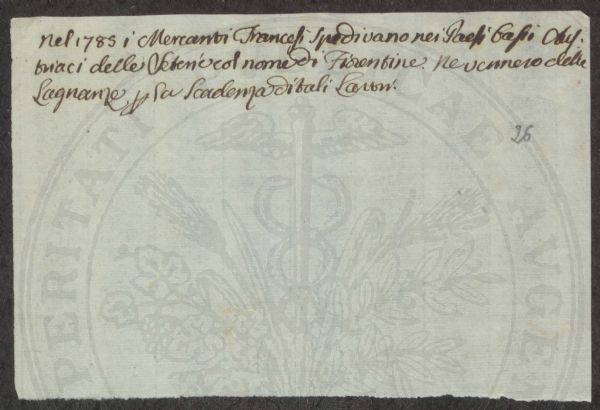 Nel 1785 i Mercanti Francesi Spedivano nei Paesi bassi Aus
triaci delle Seterie col nome di Fiorentine. Ne vennero delle
Lagnanze p la Scadenza di tali Lavori.
26
PERITATI
AE AUGE